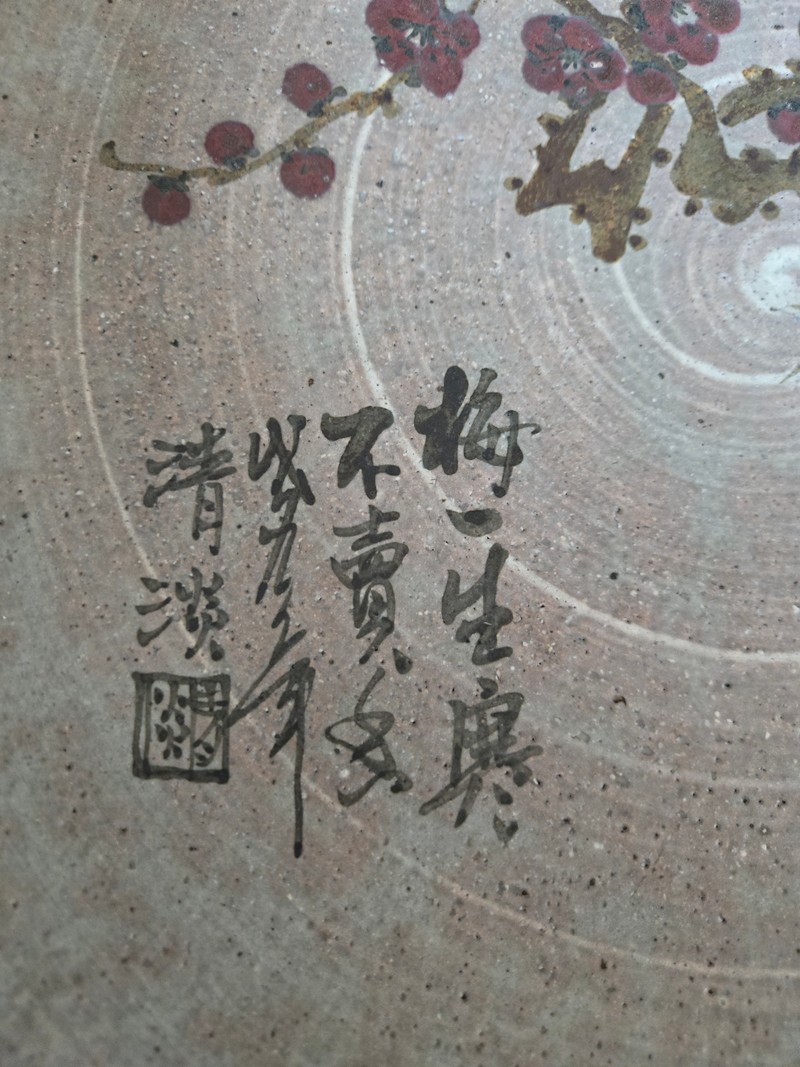 梅一生寒
不賣香
九年
清淡